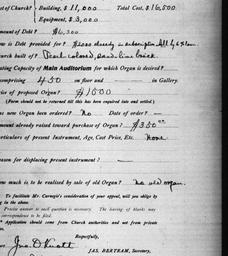 st of Church? Building, $11,000 Total Cost, $16,500
Equipment, $3,000
mount of Debt? $6,300
ow is Debt provided for? $2000 already in subscription
urch built of? Pearl-colored, sand-lime brick
ating Capacity of Main Auditorium for which Organ is desired?
comprising 450 on floor and — in Gallery.
rice of proposed Organ? $1500
(Form should not be returned till this has been enquired into and settled.)
as new Organ been ordered? No Date of order? —
mount already raised toward purchase of Organ? $350.00
articulars of present Instrument, Age, Cost Price, Etc. None
eason for displacing present instrument? —
ow much is to be realized by sale of old Organ? no old organ.
To facilitate Mr. Carnegie's consideration of your appeal, will you oblige by
ing in the above.
Precise answer to each question is necessary. The leaving of blanks may
correspondence to be filed.
Application should come from Church authorities and not from private
Respectfully,
JAS. BERTRAM, Secretary,